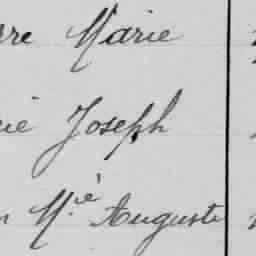 Marie
Joseph
M.ie Auguste